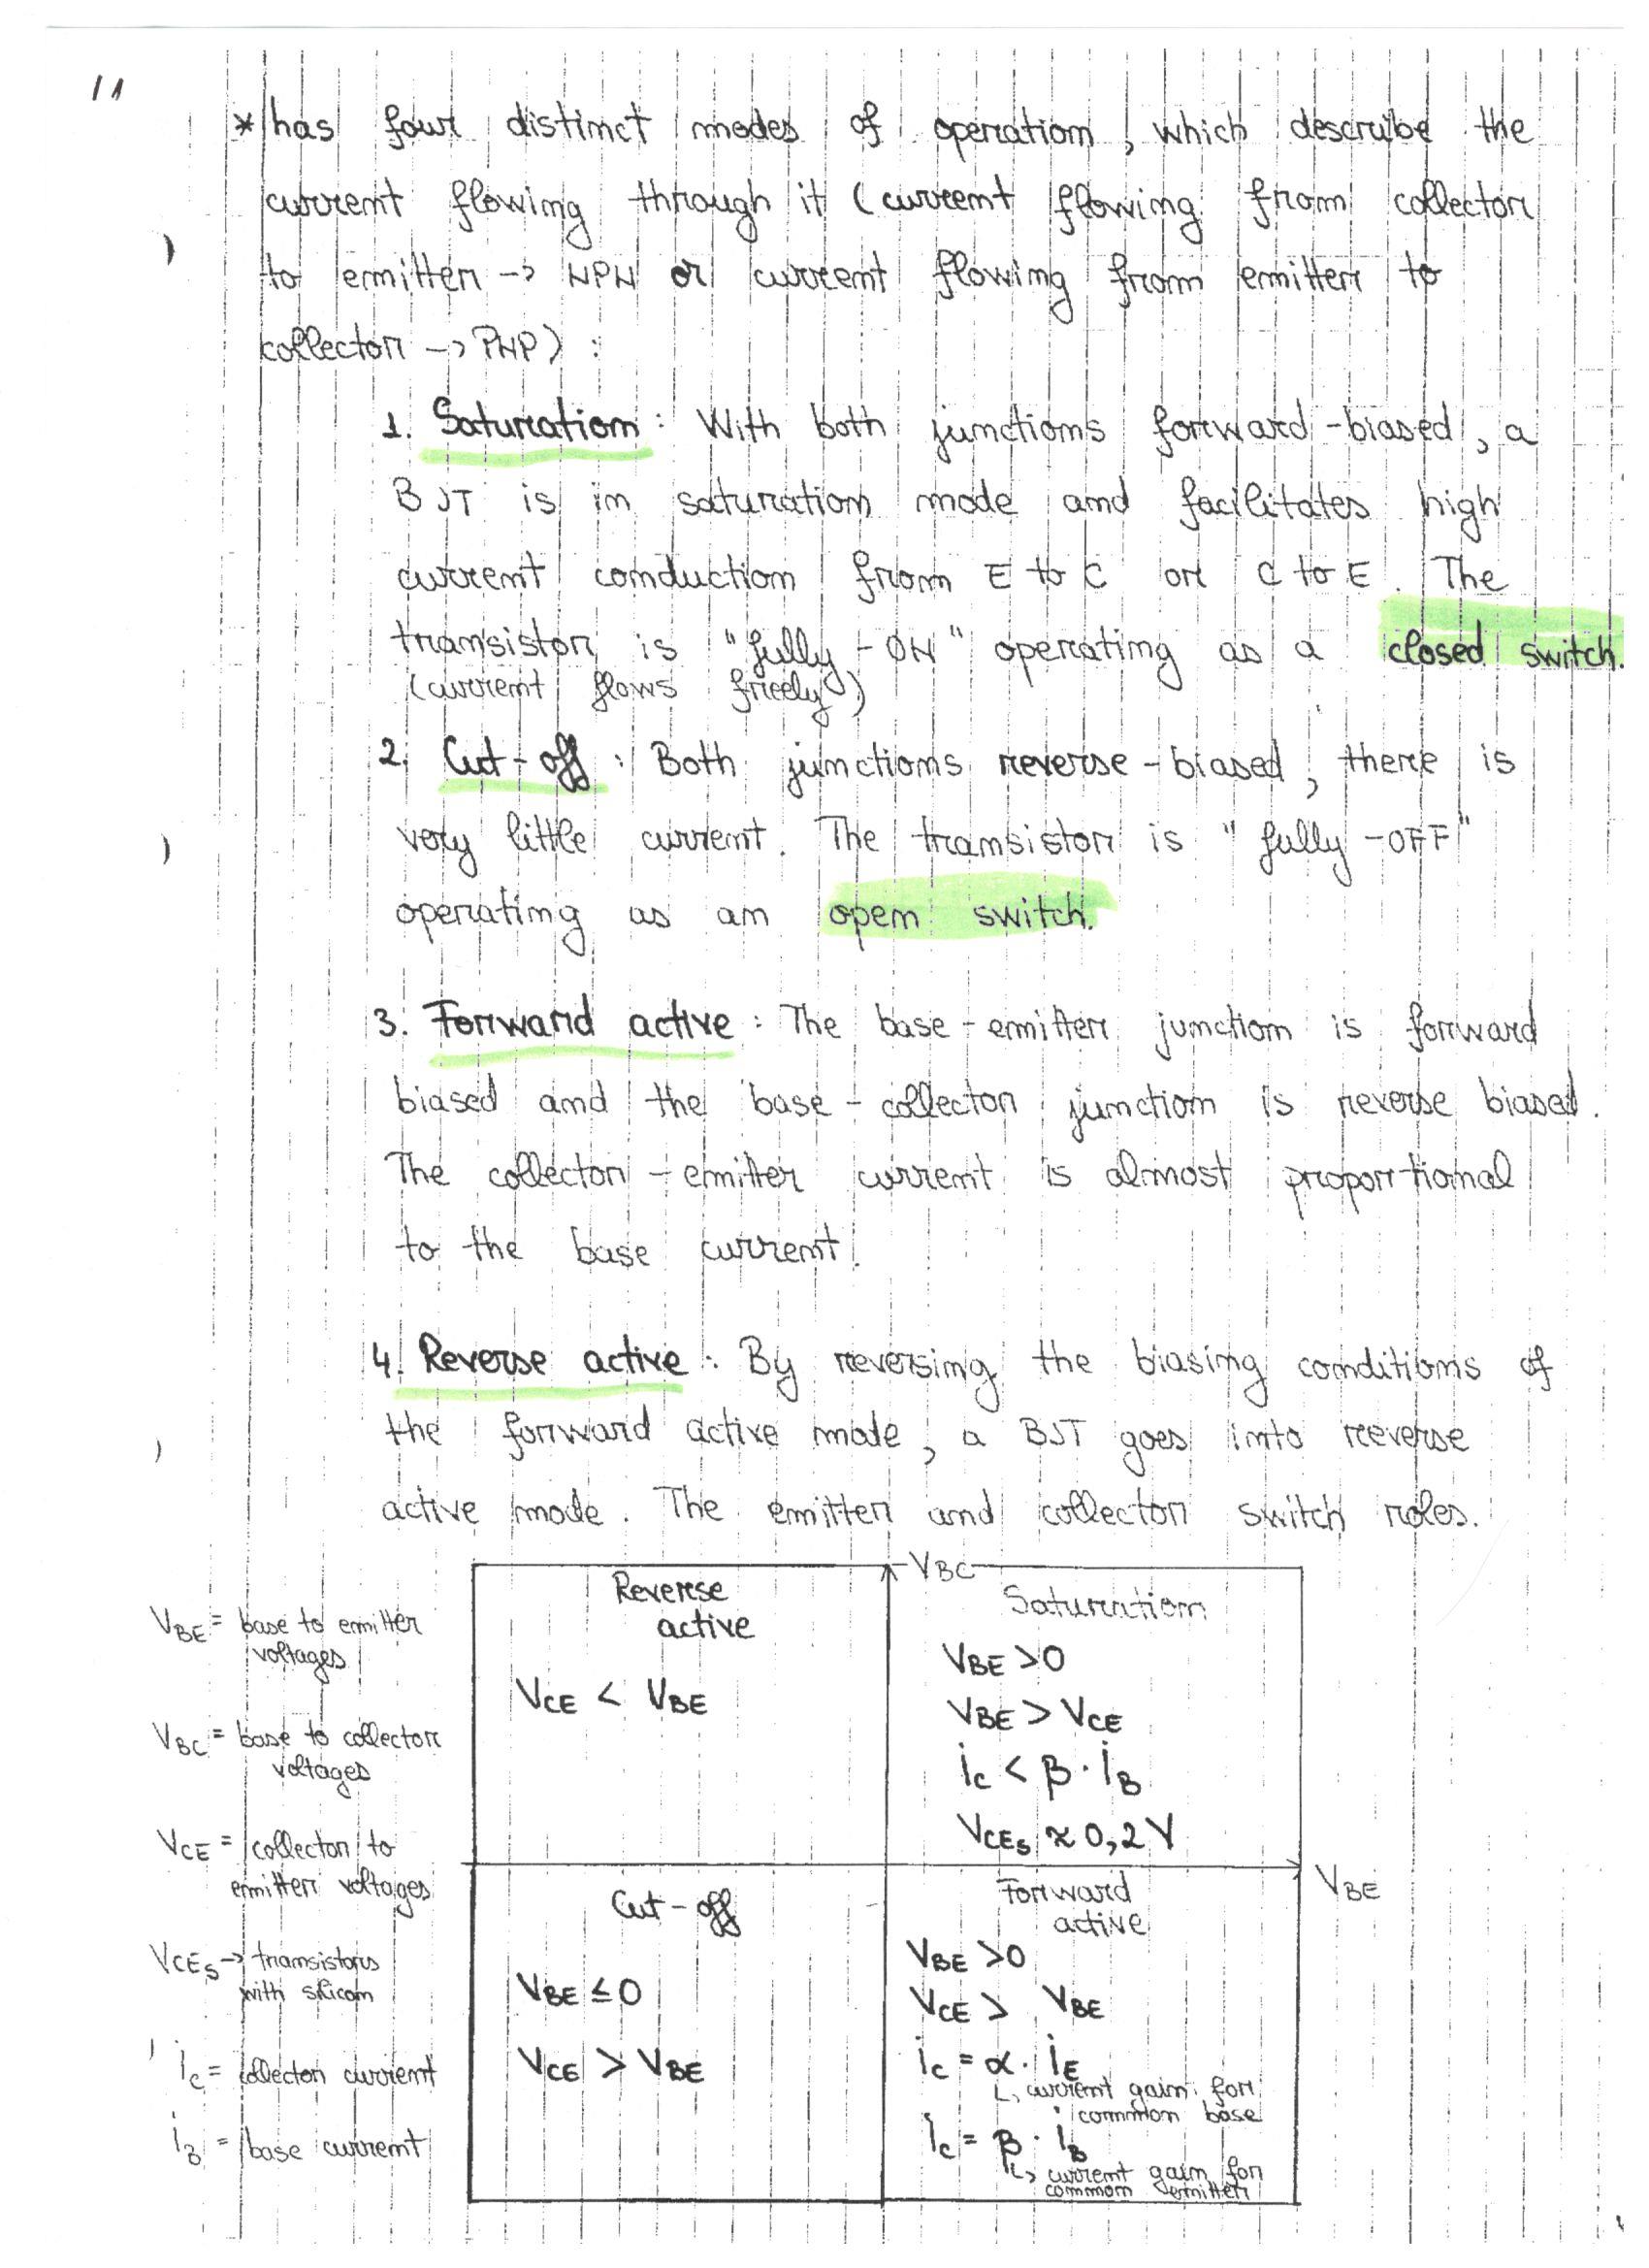 11
* has four distinct modes of operation, which describe the
current flowing through it (current flowing from collector
to emitter -> NPN or current flowing from emitter to
collector -> PNP) :
1. Saturation : With both junctions forward-biased, a
BJT is in saturation mode and facilitates high
current conduction from E to C or C to E. The
transistor is "fully-ON" operating as a closed switch.
(current flows freely)
2. Cut-off : Both junctions reverse-biased, there is
very little current. The transistor is "fully-OFF"
operating as an open switch.
3. Forward active : The base-emitter junction is forward
biased and the base-collector junction is reverse biased.
The collector-emitter current is almost proportional
to the base current.
4. Reverse active : By reversing the biasing conditions of
the forward active mode, a BJT goes into reverse
active mode. The emitter and collector switch roles.
VBE = base to emitter
voltages
VBC = base to collector
voltages
VCE = collector to
emitter voltages
VCES -> transistors
with silicon
iC = collector current
iB = base current
VBC
Reverse
active
VCE < VBE
Saturation
VBE > 0
VBE > VCE
iC < β · iB
VCES ≈ 0,2 V
VBE
Cut-off
VBE ≤ 0
VCE > VBE
Forward
active
VBE > 0
VCE > VBE
iC = α · iE
↳ current gain for
common base
iC = β · iB
↳ current gain for
common emitter